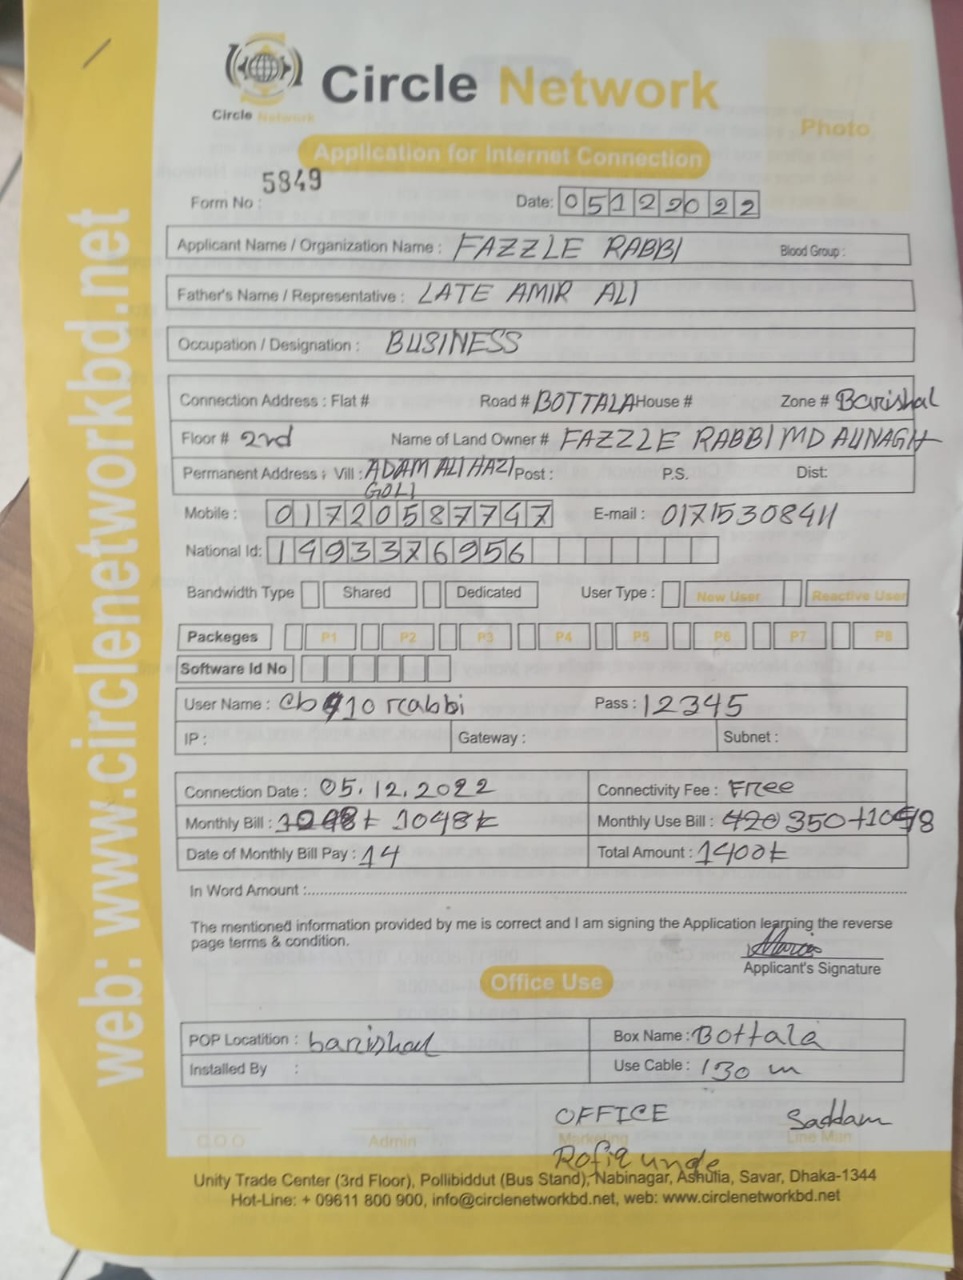 Circle Network
Circle Network
Photo
Application for Internet Connection
Form No : 5849
Date: 05122022
Applicant Name / Organization Name : FAZZLE RABBI Blood Group :
Father's Name / Representative : LATE AMIR ALI
Occupation / Designation : BUSINESS
Connection Address : Flat # Road # BOTTALA House # Zone # Barishal
Floor # 2nd Name of Land Owner # FAZZLE RABBI MD
Permanent Address : Vill : ADAM ALI HAZI GOLI Post : P.S. Dist:
Mobile : 01720587747 E-mail : 01715308411
National Id: 1493376956
Bandwidth Type Shared Dedicated User Type : New User Reactive User
Packeges P1 P2 P3 P4 P5 P6 P7 P8
Software Id No
User Name : rabbi Pass : 12345
IP : Gateway : Subnet :
Connection Date : 05.12.2022 Connectivity Fee : Free
Monthly Bill : 1048t Monthly Use Bill : 350+1048
Date of Monthly Bill Pay : 14 Total Amount : 1400t
In Word Amount :
The mentioned information provided by me is correct and I am signing the Application learning the reverse
page terms & condition.
Applicant's Signature
Office Use
POP Locatition : barishal Box Name : Bottala
Installed By : Use Cable : 130 m
OFFICE Saddam
COO Admin Marketing Line Man
Rofiq
Unity Trade Center (3rd Floor), Pollibiddut (Bus Stand), Nabinagar, Ashulia, Savar, Dhaka-1344
Hot-Line: + 09611 800 900, info@circlenetworkbd.net, web: www.circlenetworkbd.net
web: www.circlenetworkbd.net